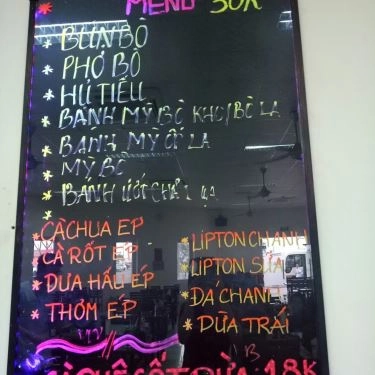 MENU 30K
* BÚN BÒ
* PHỞ BÒ
* HỦ TIẾU
* BÁNH MỲ BÒ KHO/BÒ LA
* BÁNH MỲ ỐP LA
* MỲ BÒ
* BÁNH ƯỚT CHẢ LỤA
* CÀ CHUA ÉP
* CÀ RỐT ÉP
* DƯA HẤU ÉP
* THƠM ÉP
* LIPTON CHANH
* LIPTON SỮA
* ĐÁ CHANH
* DỪA TRÁI
CÀ PHÊ CỐT DỪA 18K